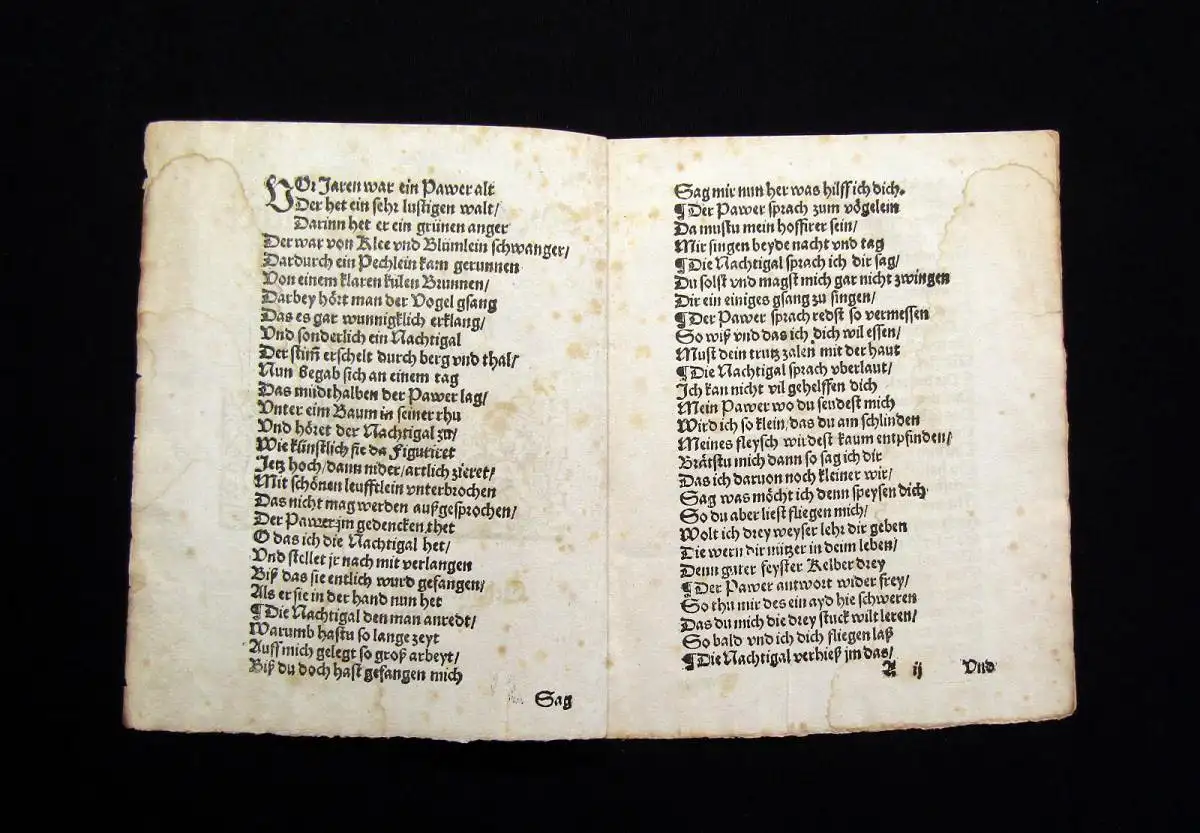 VOr Jaren war ein Pawer alt
Der het ein sehr lustigen walt/
Darinn het er ein grünen anger
Der war von Klee vnd Blümlein schwanger/
Dardurch ein Pechlein kam gerunnen
Von einem klaren külen Brunnen/
Darbey hört man der Vogel gsang
Das es gar wunnigklich erklang/
Vnd sonderlich ein Nachtigal
Der stim̃ erschelt durch berg vnd thal/
Nun begab sich an einem tag
Das müdthalben der Pawer lag/
Vnter eim Baum in seiner rhu
Vnd höret der Nachtigal zu/
Wie künstlich sie da Figuriret
Jetz hoch/dann nider/artlich zieret/
Mit schönen leufftlein vnterbrochen
Das nicht mag werden außgesprochen/
Der Pawer jm gedencken thet
O das ich die Nachtigal het/
Vnd stellet jr nach mit verlangen
Biß das sie entlich wurd gefangen/
Als er sie in der hand nun het
¶Die Nachtigal den man anredt/
Warumb hastu so lange zeyt
Auff mich gelegt so groß arbeyt/
Biß du doch hast gefangen mich
Sag
Sag mir nun her was hilff ich dich.
¶Der Pawer sprach zum vögelein
Da mustu mein hoffirer sein/
Mir singen beyde nacht vnd tag
¶Die Nachtigal sprach ich dir sag/
Du solst vnd magst mich gar nicht zwingen
Dir ein einiges gsang zu singen/
¶Der Pawer sprach redst so vermessen
So wiß vnd das ich dich wil essen/
Must dein trutz zalen mit der haut
¶Die Nachtigal sprach vberlaut/
Ich kan nicht vil gehelffen dich
Mein Pawer wo du seudest mich
Wird ich so klein/das du am schlinden
Meines fleysch wirdest kaum entpfinden/
Brätstu mich dann so sag ich dir
Das ich daruon noch kleiner wir/
Sag was möcht ich denn speysen dich
So du aber liest fliegen mich/
Wolt ich drey weyser lehr dir geben
Die wern dir nützer in deim leben/
Denn guter feyster Kelber drey
¶Der Pawer antwort wider frey/
So thu mir des ein ayd hie schweren
Das du mich die drey stuck wilt leren/
So bald vnd ich dich fliegen laß
¶Die Nachtigal verhieß jm das/
A ij Vnd